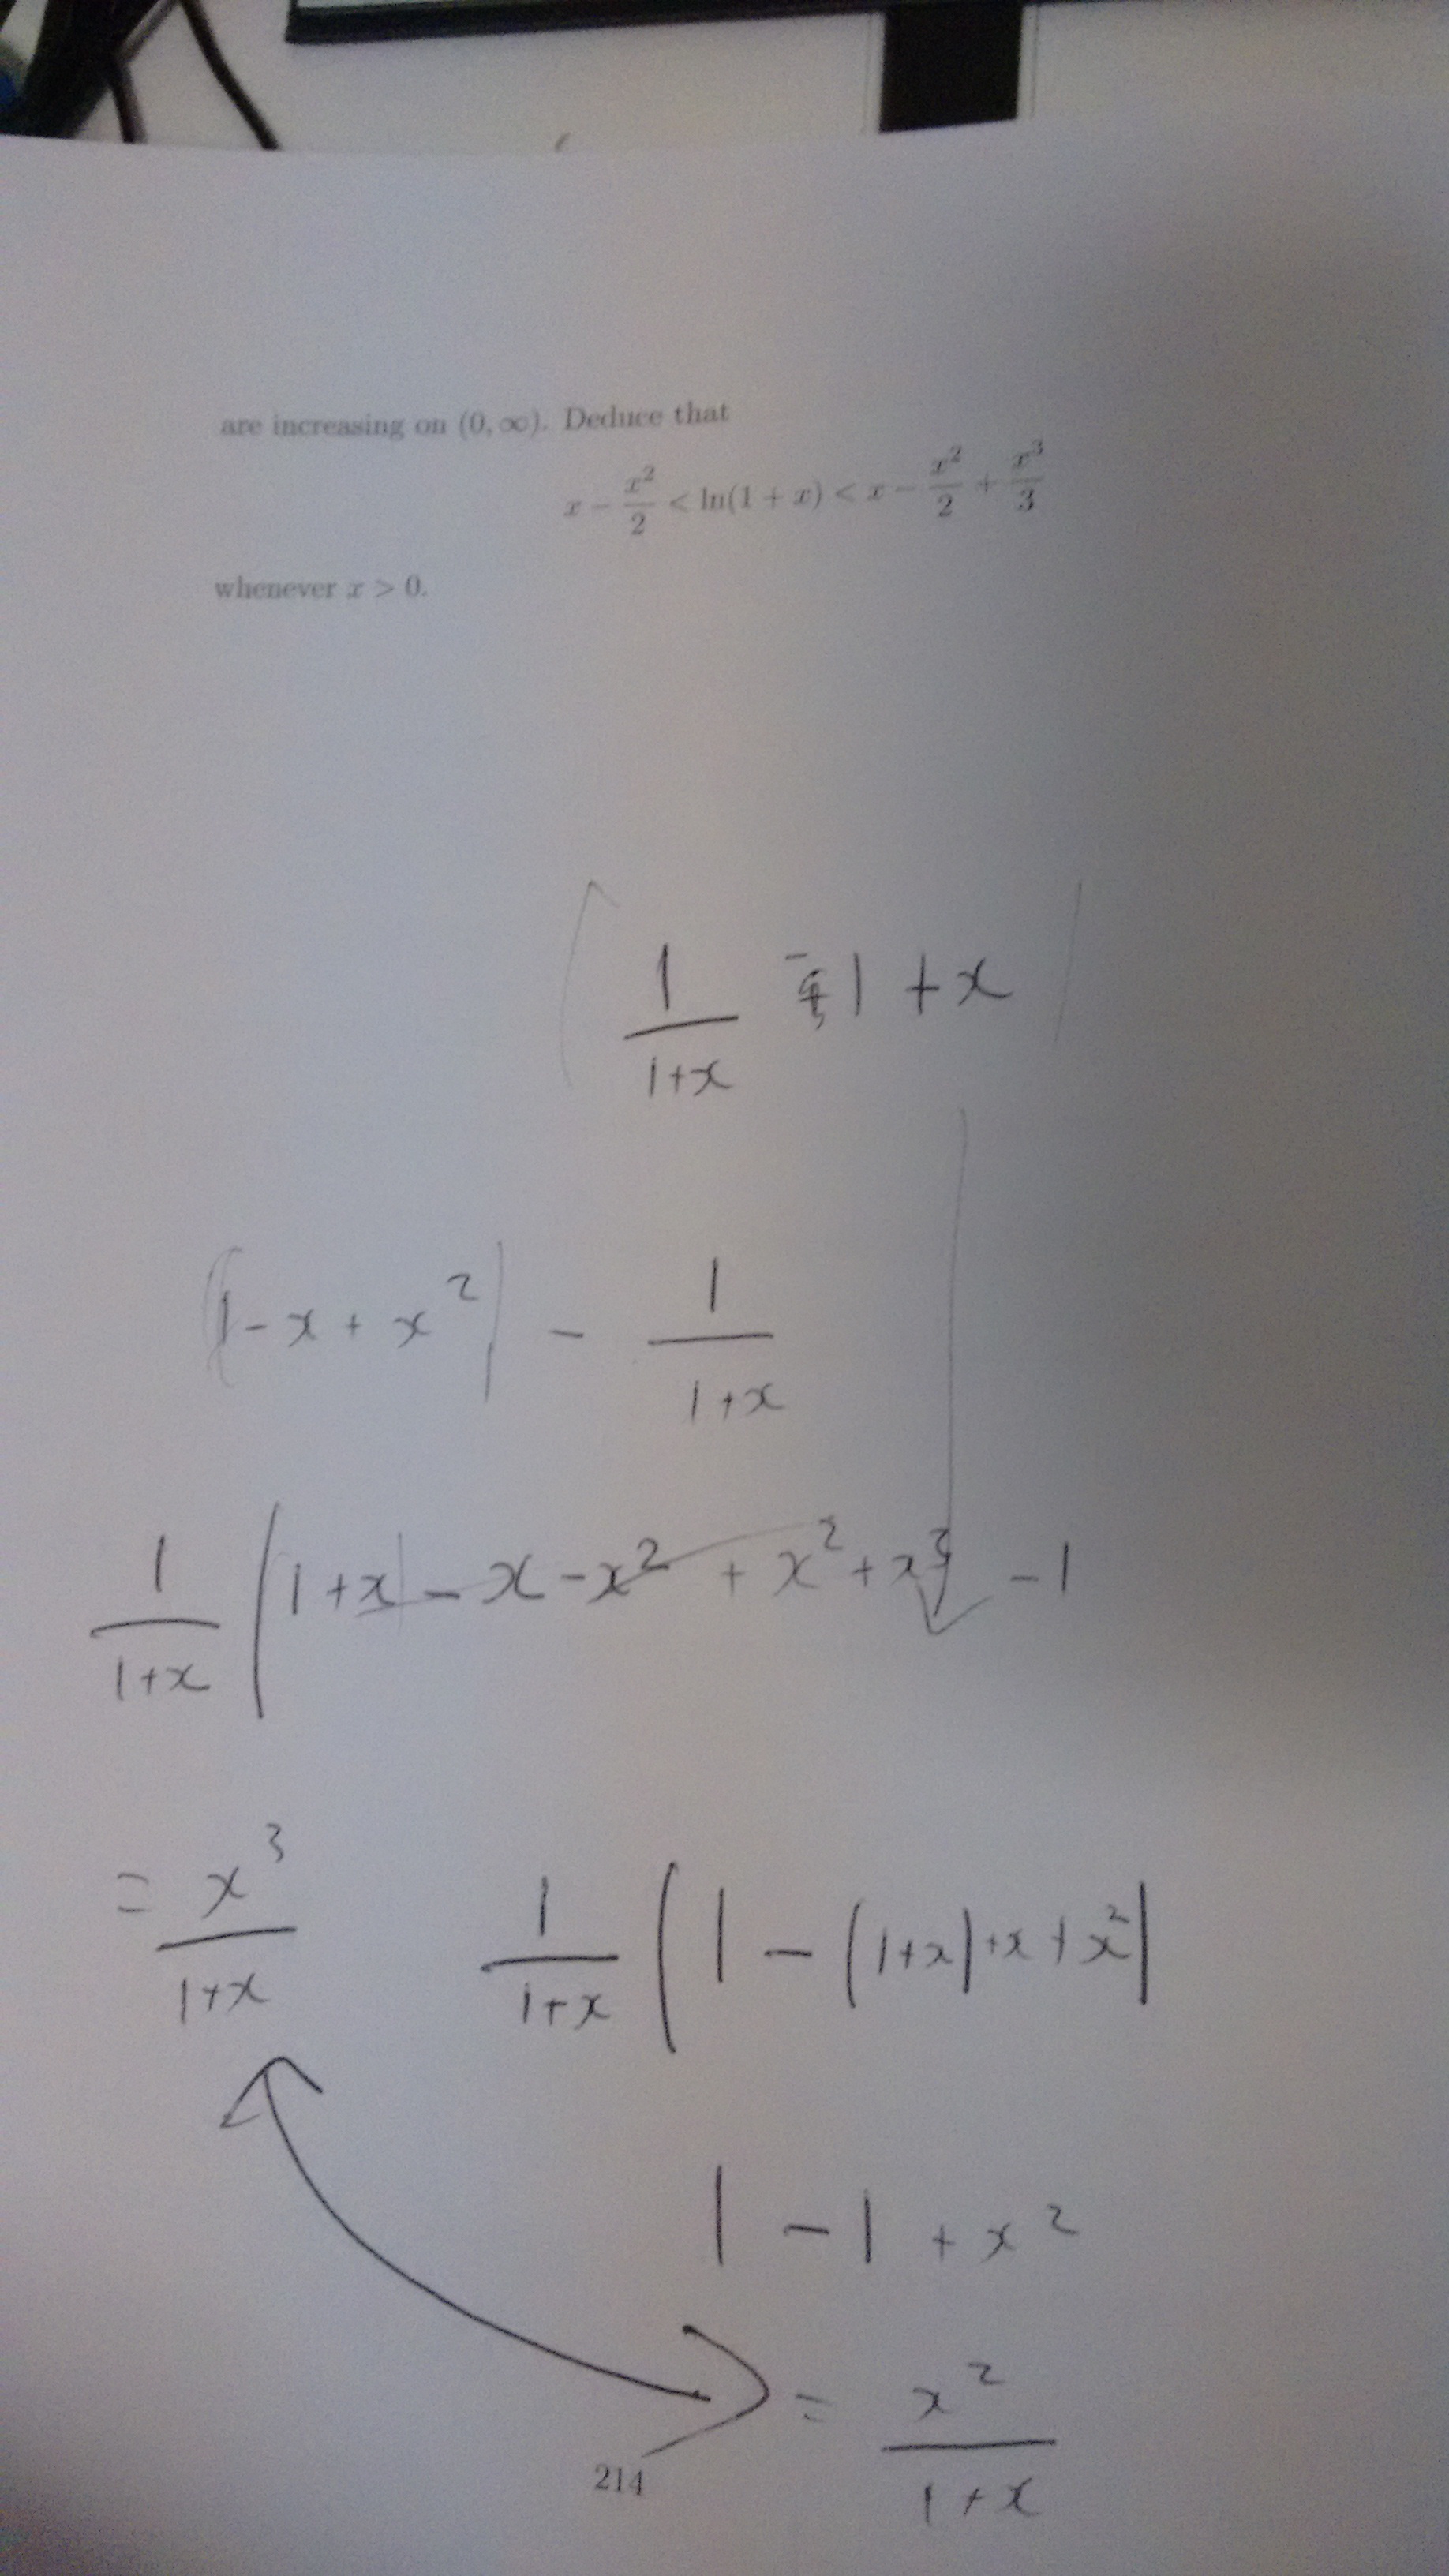 are increasing on (0, ∞). Deduce that
x − x²/2 < ln(1 + x) < x − x²/2 + x³/3
whenever x > 0.
( 1/(1+x) - 1 + x )
(1 - x + x²) - 1/(1+x)
1/(1+x) ( 1+x - x - x² + x² + x³ - 1
= x³/(1+x)
1/(1+x) ( 1 - (1+x) + x + x² )
1 - 1 + x²
= x²/(1+x)
214